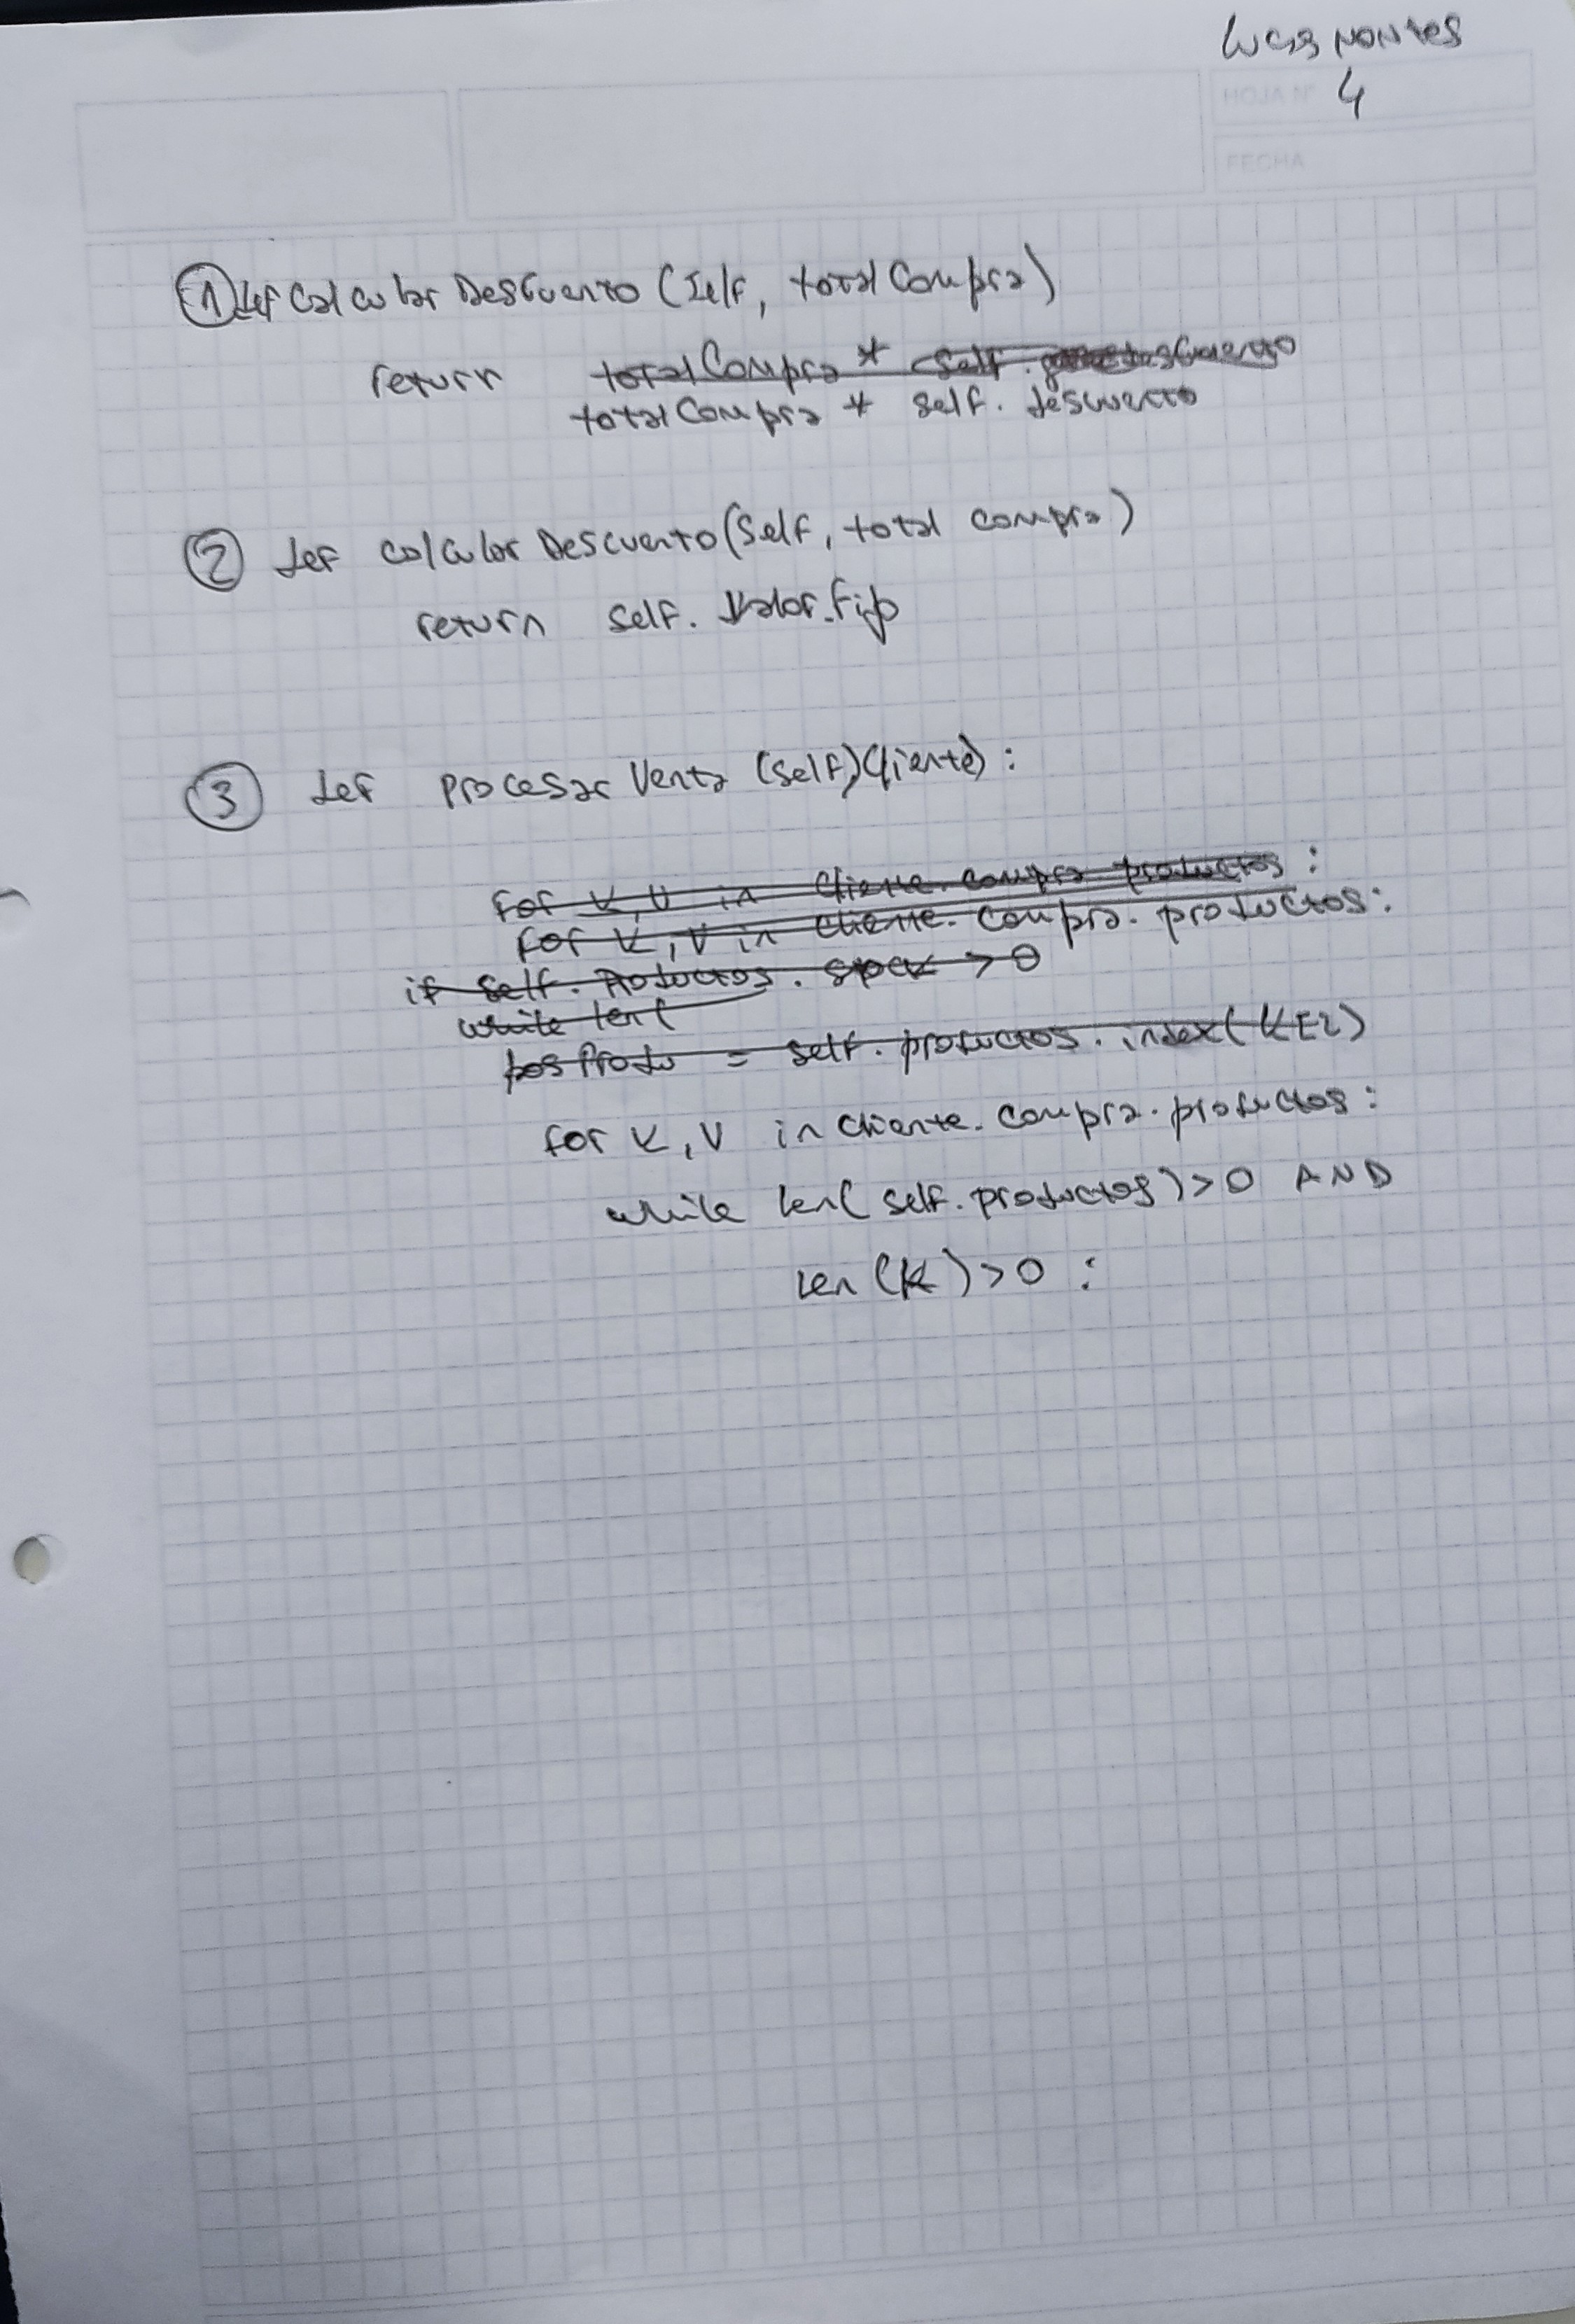 Lucas Montes
HOJA N° 4
FECHA
① def calcular Descuento (Self, total Compra)
return total Compra * self. descuento
total Compra * self. descuento
② def calcular Descuento (Self, total compra)
return self. Valor_fijo
③ def procesar Venta (self, Cliente) :
for K, V in Cliente. compra productos :
for K, V in cliente. compra. productos :
if self. Productos. stock > 0
while len(
pos Produ = self. productos. index( K[2)
for K, V in cliente. compra. productos :
while len( self. productos ) > 0 AND
len (K) > 0 :